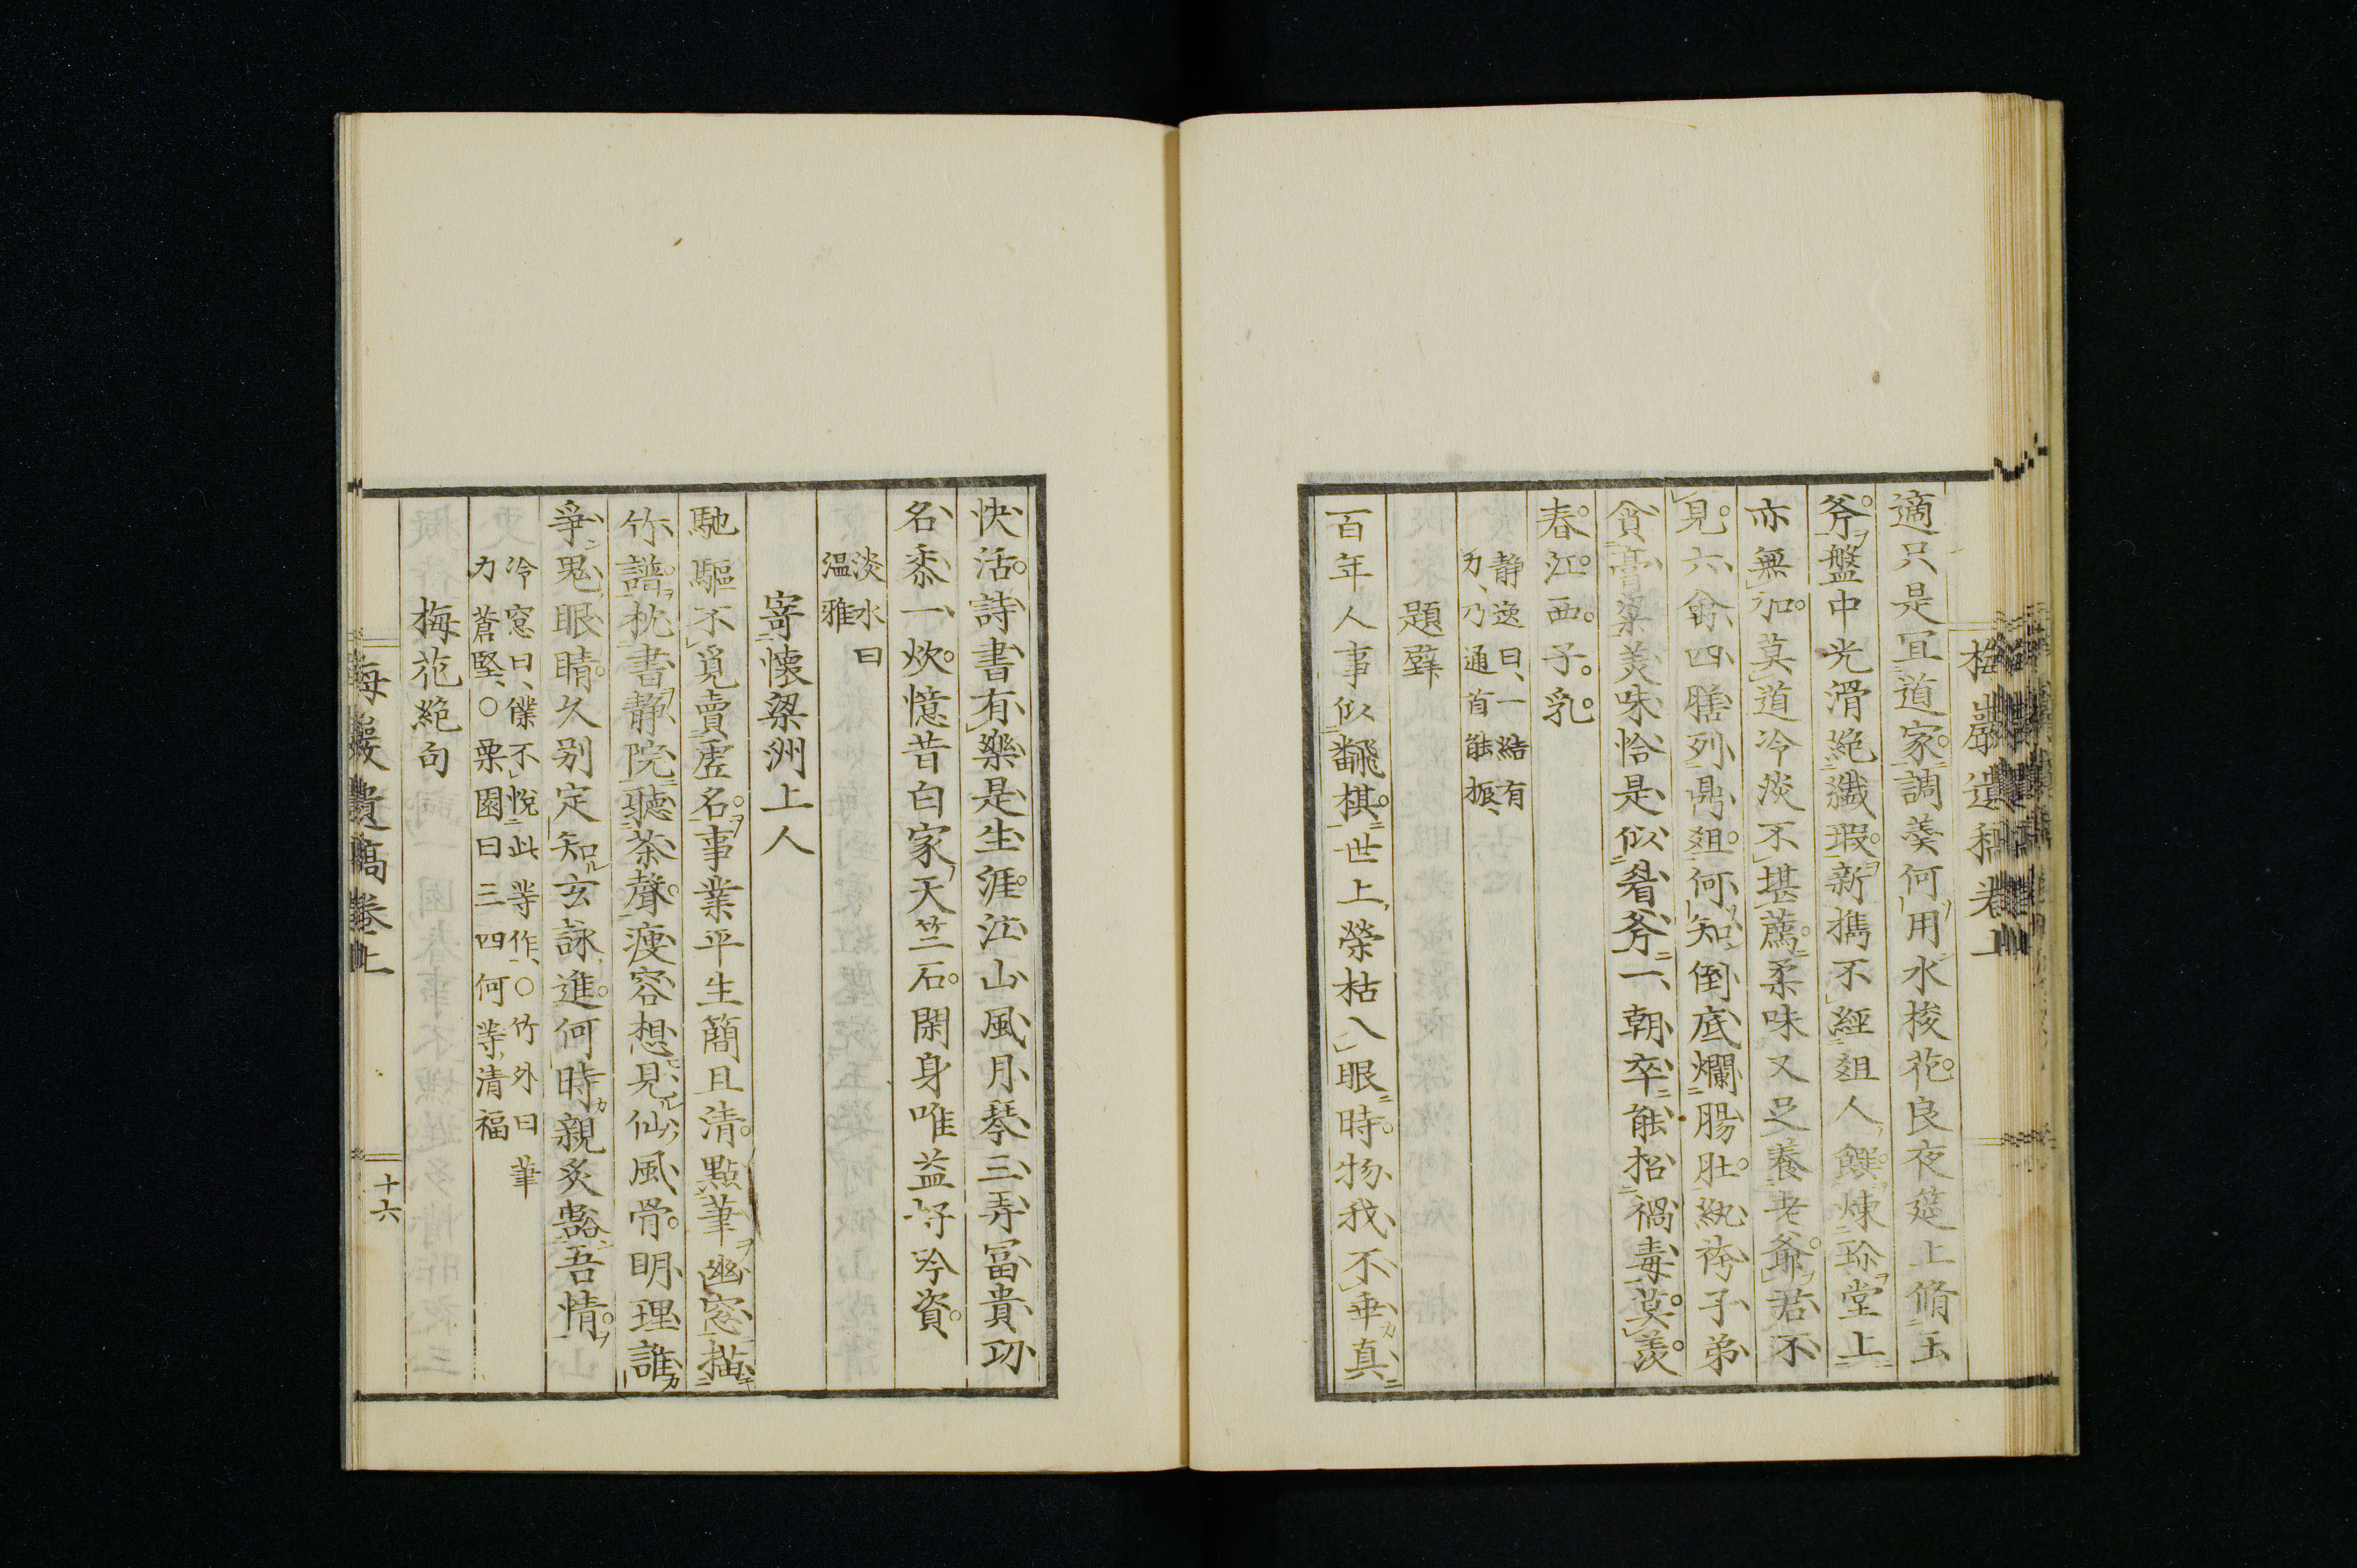 適只是冝道家調羮何用水梭花良夜筵上脩玉
斧盤中光滑絶纖瑕新擕不經爼人饌煉珍堂上
亦無加莫道冷淡不堪薦柔味又足養老爺君不
見六禽四膳列鼎爼何知倒底爛腸肚紈袴子弟
貪膏粱美味恰是似看斧一朝卒能招禍毒莫羨
春江西子乳
静逸曰、一結有
力、乃通首能振、
題壁
百年人事似飜棋世上榮枯入眼時物我不垂真
快活詩書有樂是生涯江山風月琴三弄富貴功
名黍一炊憶昔白家天竺石閑身唯益好吟資
淡水曰
温雅
寄懐梁洲上人
馳驅不覓賣虚名事業平生簡且清點筆幽窓描
竹譜枕書静院聽茶聲痩容想見仙風骨明理誰
爭鬼眼睛久别定知玄詠進何時親炙豁吾情
冷窓曰、僕不悅此等作、○竹外曰筆
力蒼堅、○栗園曰三四何等清福
梅花絶句
梅巖遺稿卷上
十六